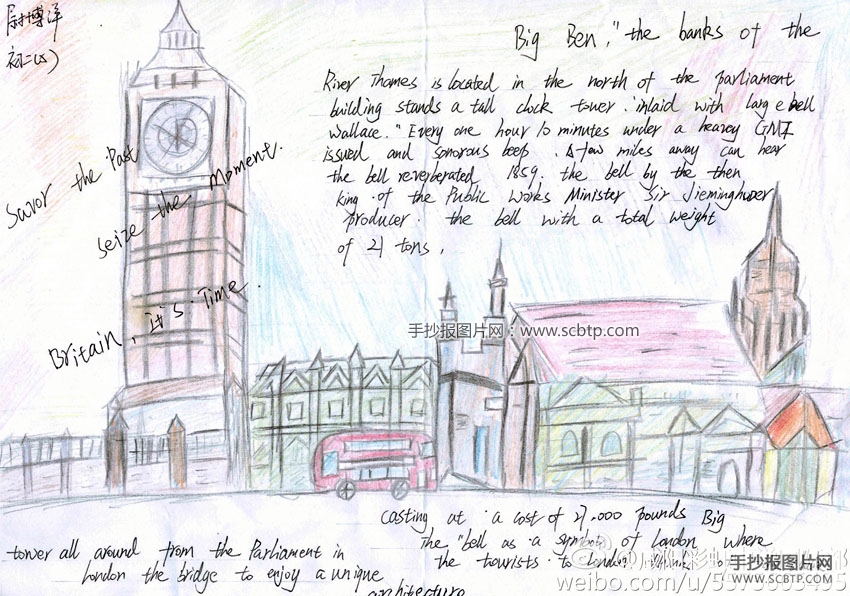 尉博洋
初二(5)
Big Ben, "the banks of the
River Thames is located in the north of the parliament
building stands a tall clock tower. inlaid with large bell
Wallace." Every one hour 10 minutes under a hearey GMT
issued and sonorous beep. A few miles away can hear
the bell reverberated 1859. the bell by the then
king of the Public Works Minister Sir Jieminghuoer
producer. the bell with a total weight
of 21 tons,
Savor the Past
seize the Moment.
Britain, it's Time.
手抄报图片网：www.scbtp.com
casting at a cost of 27,000 pounds Big
the "bell as a symbol of London where
the tourists to London
tower all around from the Parliament in
London the bridge to enjoy a unique
architecture
手抄报图片网
WWW.SCBTP.COM
weibo.com/u/